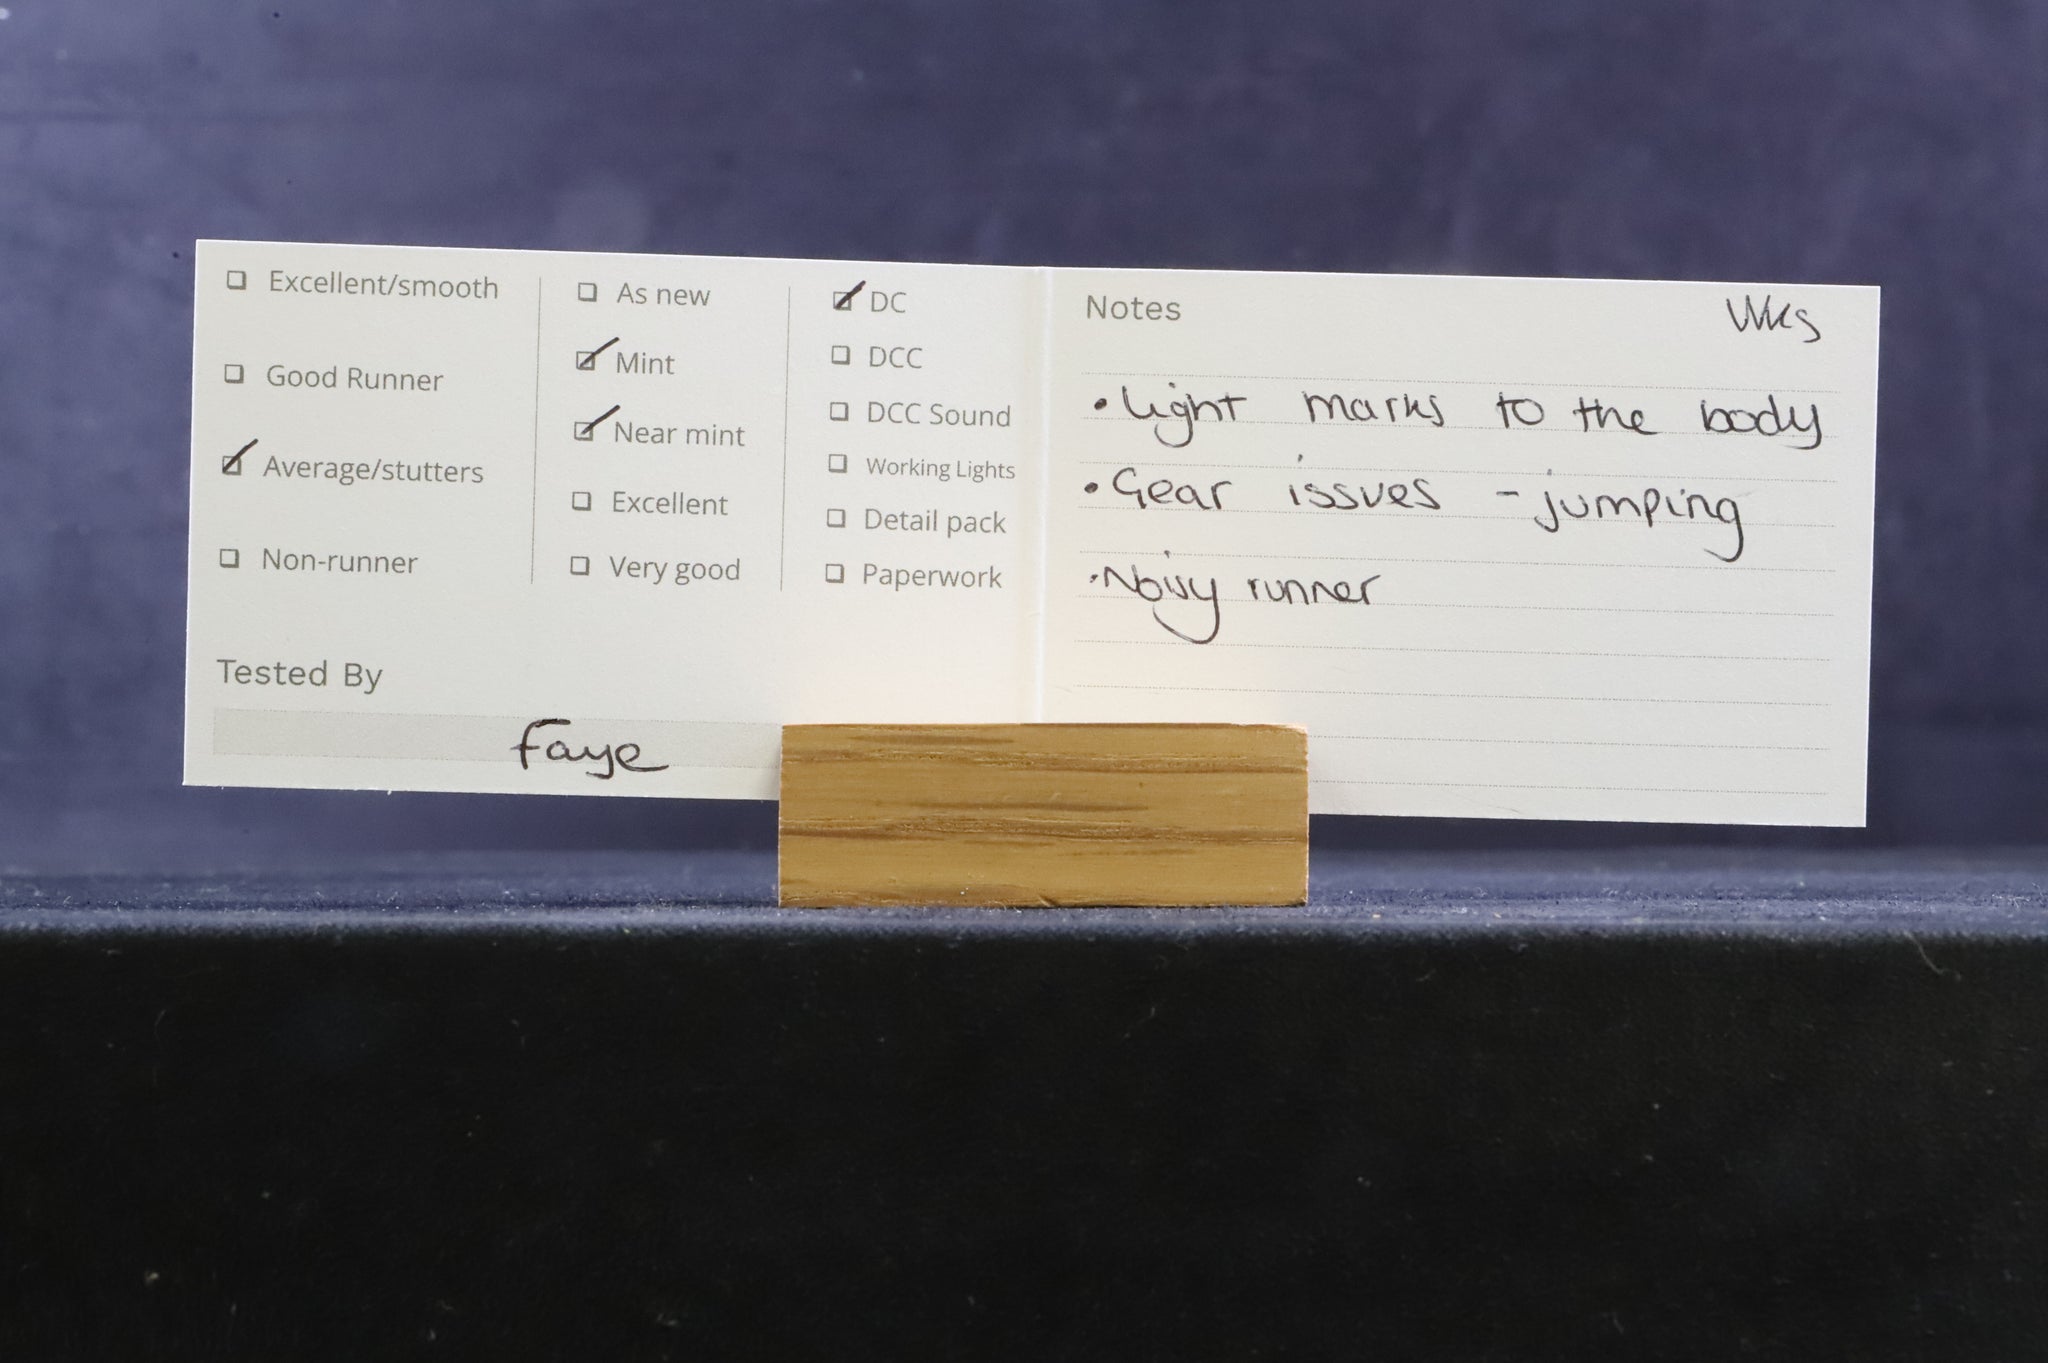 Excellent/smooth
Good Runner
Average/stutters
Non-runner
As new
Mint
Near mint
Excellent
Very good
DC
DCC
DCC Sound
Working Lights
Detail pack
Paperwork
Tested By
Faye
Notes
Wks
• Light marks to the body
• Gear issues - jumping
• Noisy runner